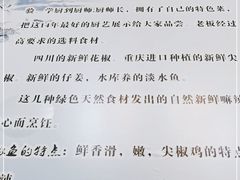 验，学厨到厨师,厨师长，拥有了自己的特色菜，
把这14年最好的厨艺展给大家品尝。老板经过
高要求的选料食材
四川的新鲜花椒、重庆进口种植的新鲜尖
椒、新鲜的仔姜，水库养的淡水鱼。
这几种绿色天然食材发出的自然新鲜麻辣
心而烹饪。
鱼的特点：鲜香滑，嫩，尖椒鸡的特点